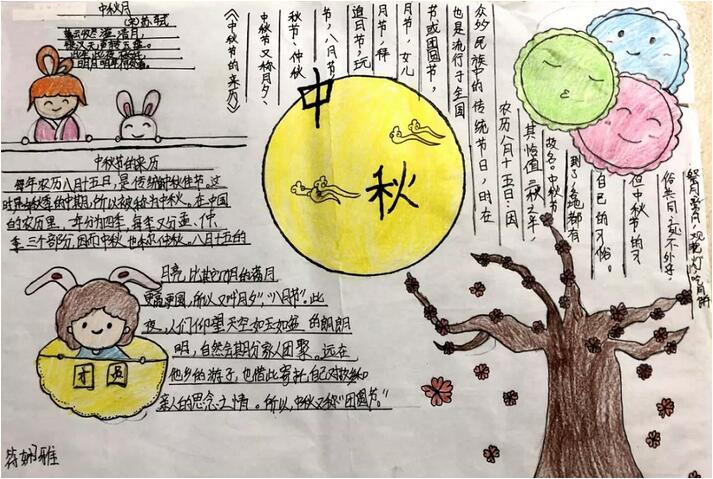 中秋月
(宋)苏轼
暮云收尽溢清月,
银汉无声转玉盘。
此生此夜不长好,
明月明年何处看。
中秋节的来历
每年农历八月十五日,是传统的中秋佳节。这
时是秋季的中期,所以被称为中秋。在中国
的农历里,一年分为四季,每季又分孟、仲、
季三个部分,因而中秋也称仲秋。八月十五的
月亮比其它几月的满月
更圆,所以又叫"月夕","八月节"。此
夜,人们仰望天空如玉如盆的朗朗
明,自然会期分家人团聚。远在
他乡的游子,也借此寄托自己对故乡和
亲人的思念之情。所以,中秋又称"团圆节。"
中
秋
《中秋节的来历》
中秋节又称月夕、
秋节、仲秋
节、八月节、
追月节、玩
月节、拜
月节、女儿
节或团圆节,
也是流行于全国
众多民族中的传统节日,时在
农历八月十五日;因
其恰值三秋之半,
故名。中秋节
到了各地都有
自己的习俗。
但中秋节的习
俗共同之处不外乎
团
圆
符娴雅